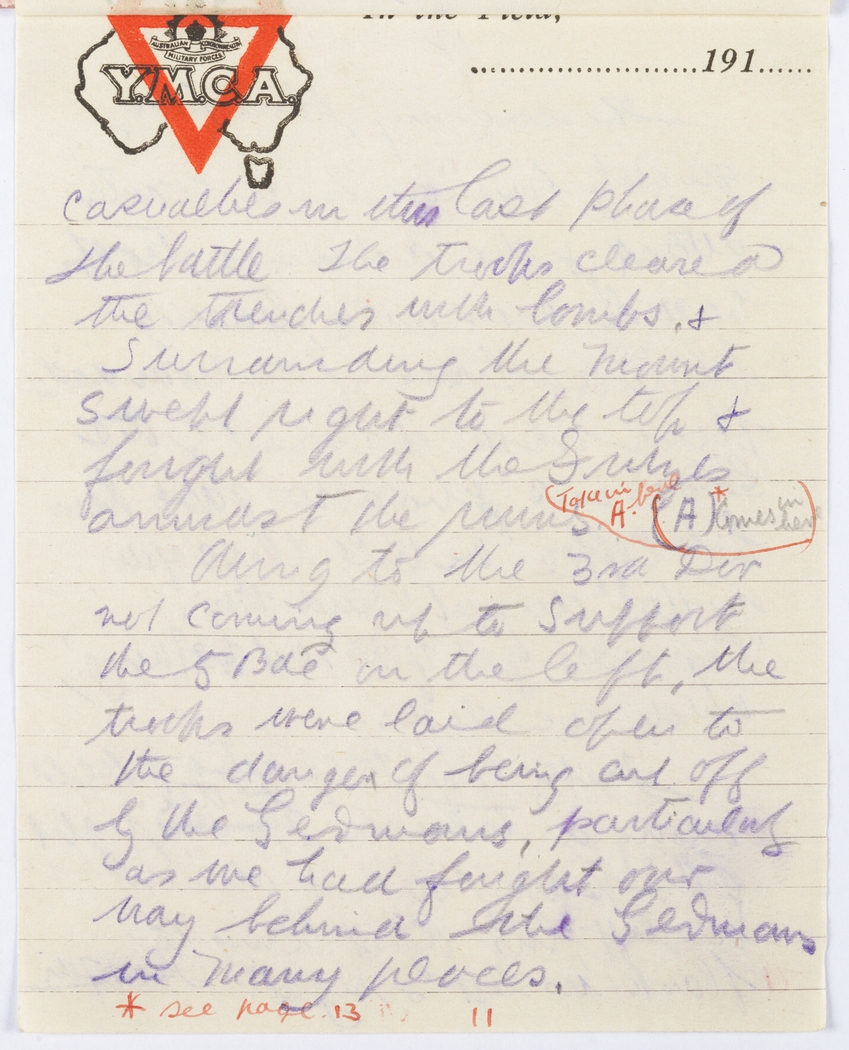 In the Field,
AUSTRALIAN COMMONWEALTH
MILITARY FORCES
Y.M.C.A.
....................191......
casualties in this last phase of
the battle The troops cleared
the trenches with bombs, &
Surrounding the Mount
swept right to the top &
fought with the
amidst the ruins. (Take in here A. (A)* Comes in here)
Owing to the 3rd Div
not coming up to support
the 5 Bde on the left, the
troops were laid open to
the danger of being cut off
by the Germans, particularly
as we had fought our
way behind the Germans
in many places.
* see page 13
11